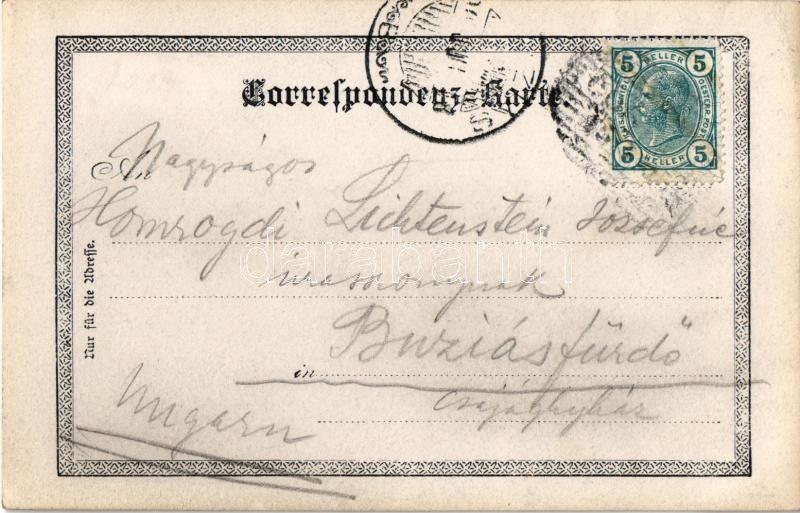 Correspondenz-Karte
5 HELLER 5
5 HELLER 5
An Nagyságos
Homrogdi Lichtenstein Józsefné
darabanth
úrasszonynak
in Buziásfürdő
Ungarn
Nur für die Adresse.